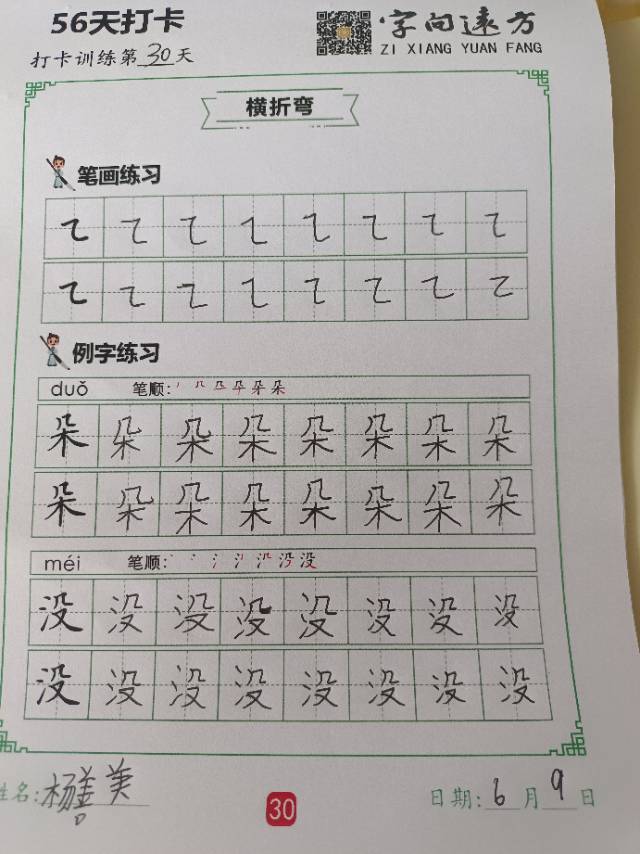 56天打卡
字向远方
打卡训练第30天
ZI XIANG YUAN FANG
横折弯
笔画练习
㇍ ㇍ ㇍ ㇍ ㇍ ㇍ ㇍ ㇍
㇍ ㇍ ㇍ ㇍ ㇍ ㇍ ㇍ ㇍
例字练习
duǒ 笔顺:
朵 朵 朵 朵 朵 朵 朵 朵
朵 朵 朵 朵 朵 朵 朵 朵
méi 笔顺:
没 没 没 没 没 没 没 没
没 没 没 没 没 没 没 没
姓名:杨善美
30
日期:6月9日